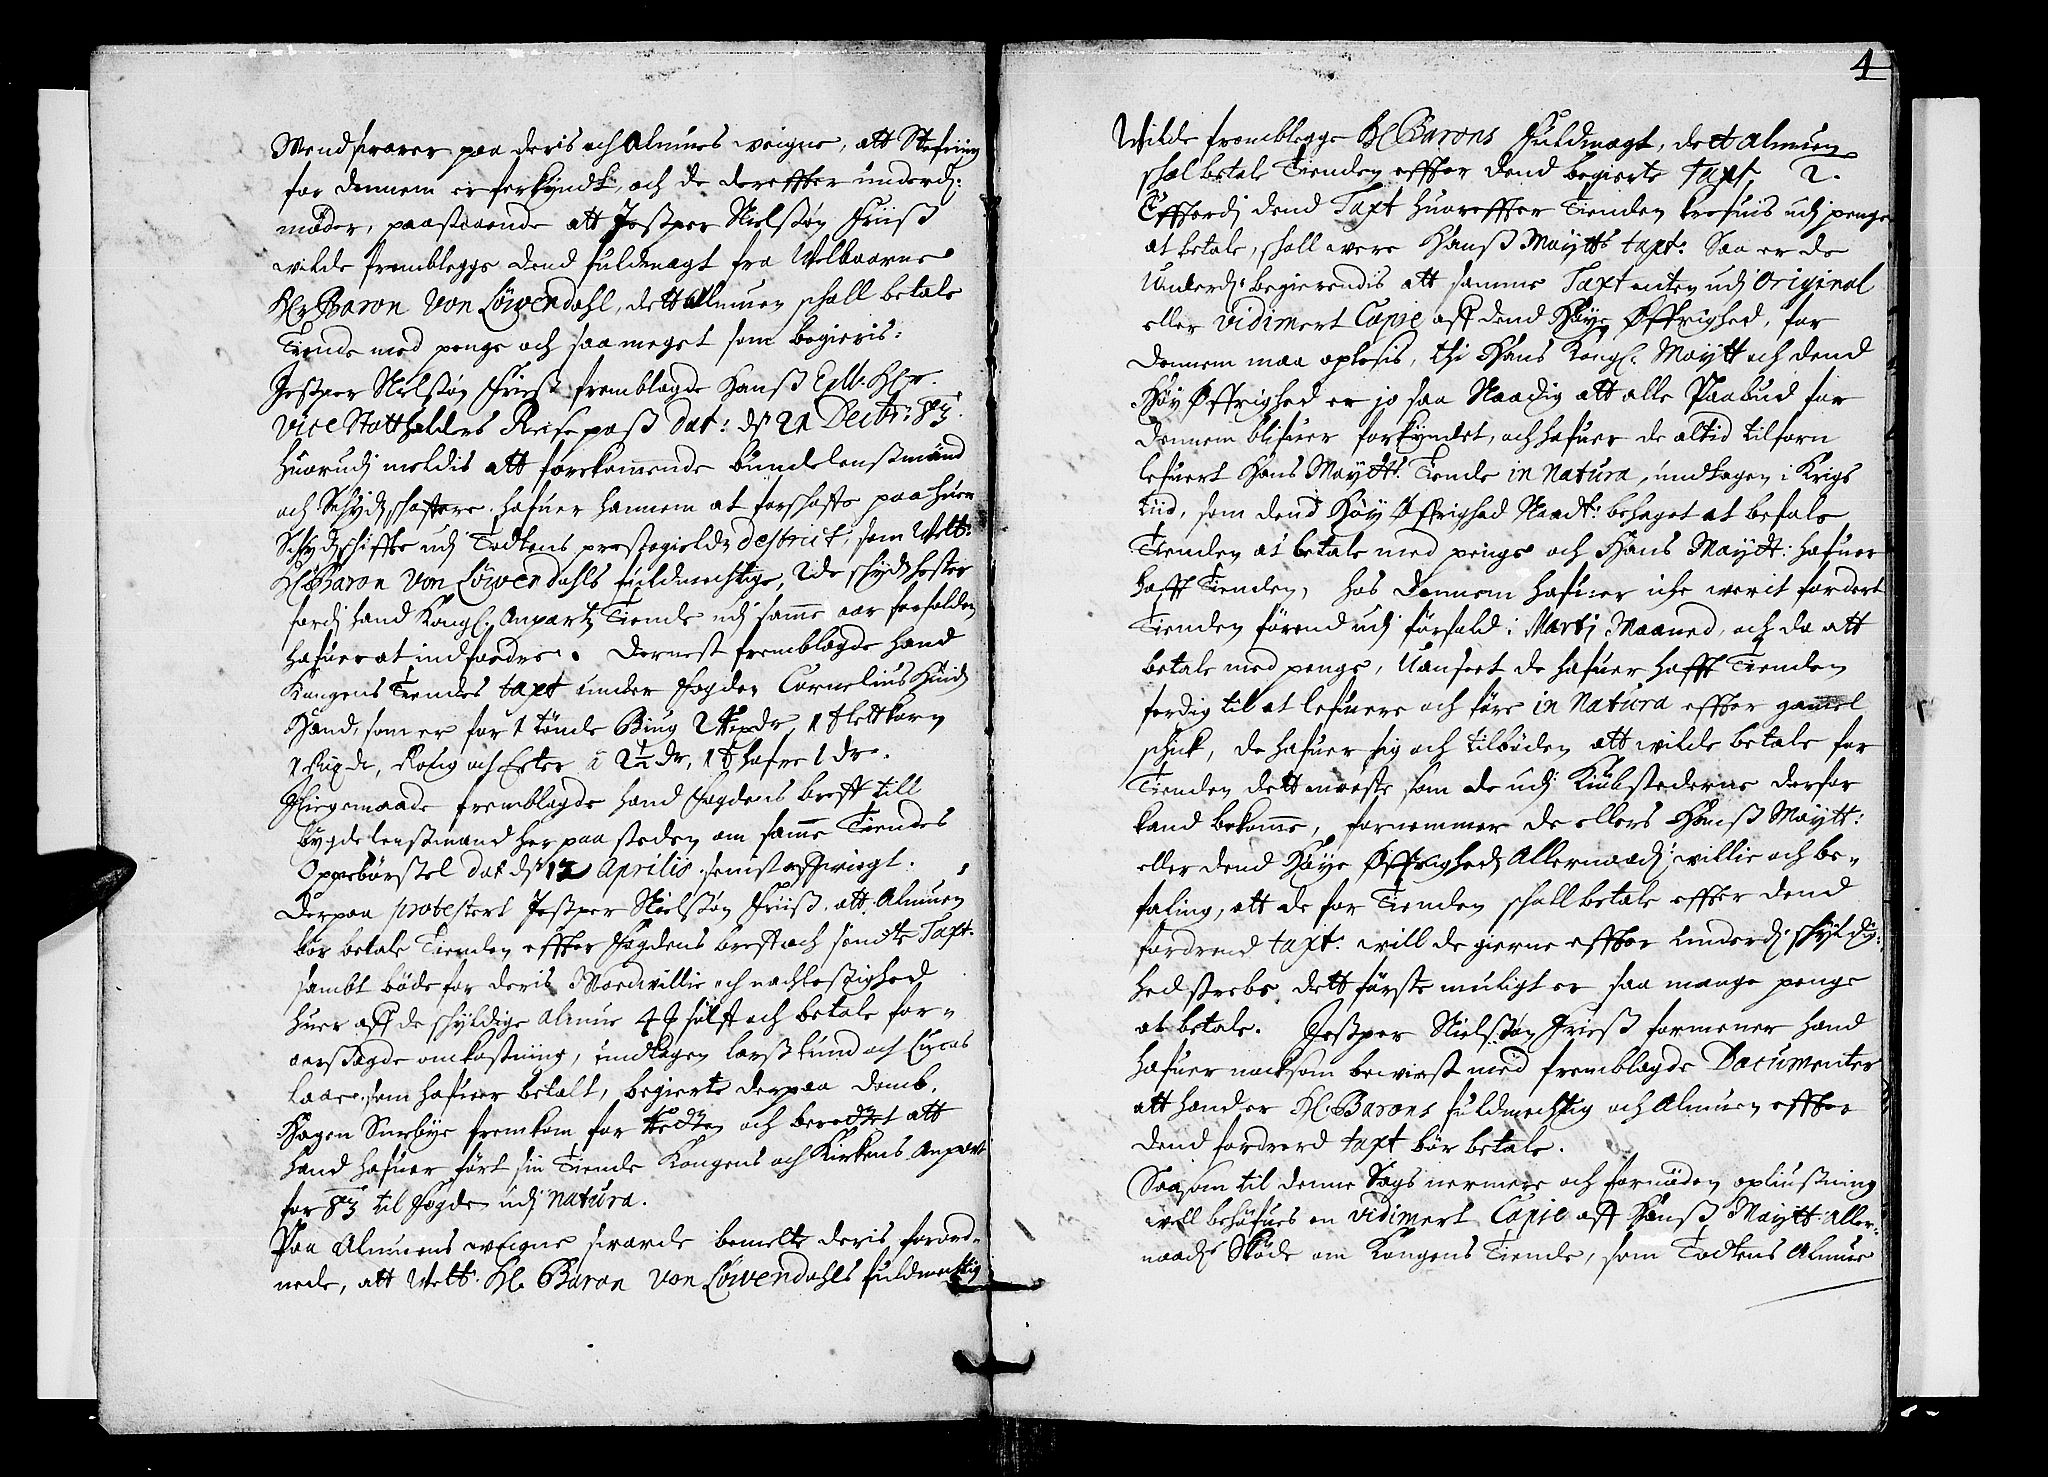 Mend svarer paa deris och Almues weigne, att Stefning
for dennem er forkyndt, och de dereffter underd:
møder, paastaaende att Jesper Nielsøn Friiss
wilde frembleggs dend fuldmagt fra Welbaarne
Hr Baron Von Löwendahl, dett Almuen schall betale
Tiende med penge och saa meget som begieris:
Jesper Nielsøn Friiss fremblagde Hanss Ex: Hr.
Vice Statthalders Reise pass dat: d 21 Decbr: 83.
Huorudj meldis att forekommende bundelenssmænd
och Schydschaffere hafuer hannem at forschaffe paa huer
Schydschiffte udj Todtens prestegields destrict, som Welb:
Hr Baron Von Löwendahls fuldmechtige, 2de schyds hester
fordj hand Kongl. Anpartz Tiende udj samme aar forfalden
hafuer at indfordre. Dernest fremblagde hand
Kongens Tiendes taxt under Fogden Cornelius
Haand, som er for 1 tønde Biug 2 dr, 1 t blettkorn
1 dr, Rofig och Erter à 2½ dr, 1 t hafre 1 dr.
Ligemaade fremblagde hand Fogdens breff till
bygdelenssmand her paa steden om samme Tiendes
Oppebørssel dat d 12 Aprilis senist affvigt.
Derpaa protestert Jesper Nielsøn Friiss, att Almuen
bør betale Tienden effter Fogdens breff och sendte Taxt.
sambt bøde for deris Modvillie och nachlessighed
huer aff de schyldige Almue 4 sølff och betale for-
aarsagde omkostning, undtagen Larss Lund och Lucas
Laae, som hafuer betalt, begierte derpaa domb.
Hagen Surbye fremkom for Retten och berettet att
hand hafuer ført sin Tiende Kongens och Kirkens Anpart
for 83 til Fogden udj Natura.
Paa Almuens weigne svarde bemelte deris forord-
nede, att Welb: Hr Baron Von Löwendahls fuldmechtig
4
Wilde fremblegge Hr Barons Fuldmagt, dett Almuen
schal betale Tienden effter dend begierte taxt, 2.
Efferdj dend Taxt huoreffter Tienden krefuis udj penge
at betale, schall were Hanss Maytts taxt: Saa er de
Underd: begierendis att samme Taxt enten udj Original
eller Vidimert Copie aff dend Høye Øffrighed, for
dennem maa oplesis, thi Hans Kongl. Maytt och dend
Høy Øffrighed er jo saa Naadig att alle Paabud for
dennem blifuer forkyndet, och hafuer de altid tilforn
lefuert Hans Maytts Tiende in Natura, undtagen i Krigs
tiid, som dend Høy Øffrighed Naadt: behaget at befale
Tienden at betale med penge och Hans Maydt: hafuer
hafft Tienden, hos dennem hafuer iche werit fordert
Tienden førend udj forfald i Martj Maaned, och da att
betale med penge, Uanseet de hafuer hafft Tienden
ferdig til at lefuere och føre in Natura effter gammel
schick, de hafuer sig och tilbøden att wilde betale for
Tienden dett meeste som de udj Kiøbstederne derfor
kand bekomme, fornemmer de ellers Hanss Maytt:
eller dend Høye Øffrigheds Allernaadj: willie och be-
faling, att de for Tienden schall betale effter dend
fordrend taxt. will de gierne effter underdj schyldig:
hed strebe dett første muligt er saa mange penge
at betale. Jesper Nielsøn Friess formener hand
hafuer nocksom beviist med fremblagde Documenter
att hand er Hr. Barons fuldmechtig och Almuen effter
dend fordrerd taxt bør betale.
Saasom til denne Sags nermere och fornøden opliussning
will behøfues en Vidimert Copie aff Hanss Maytt: Aller:
naadr Skøde om Kongens Tiende, som Todtens Almue